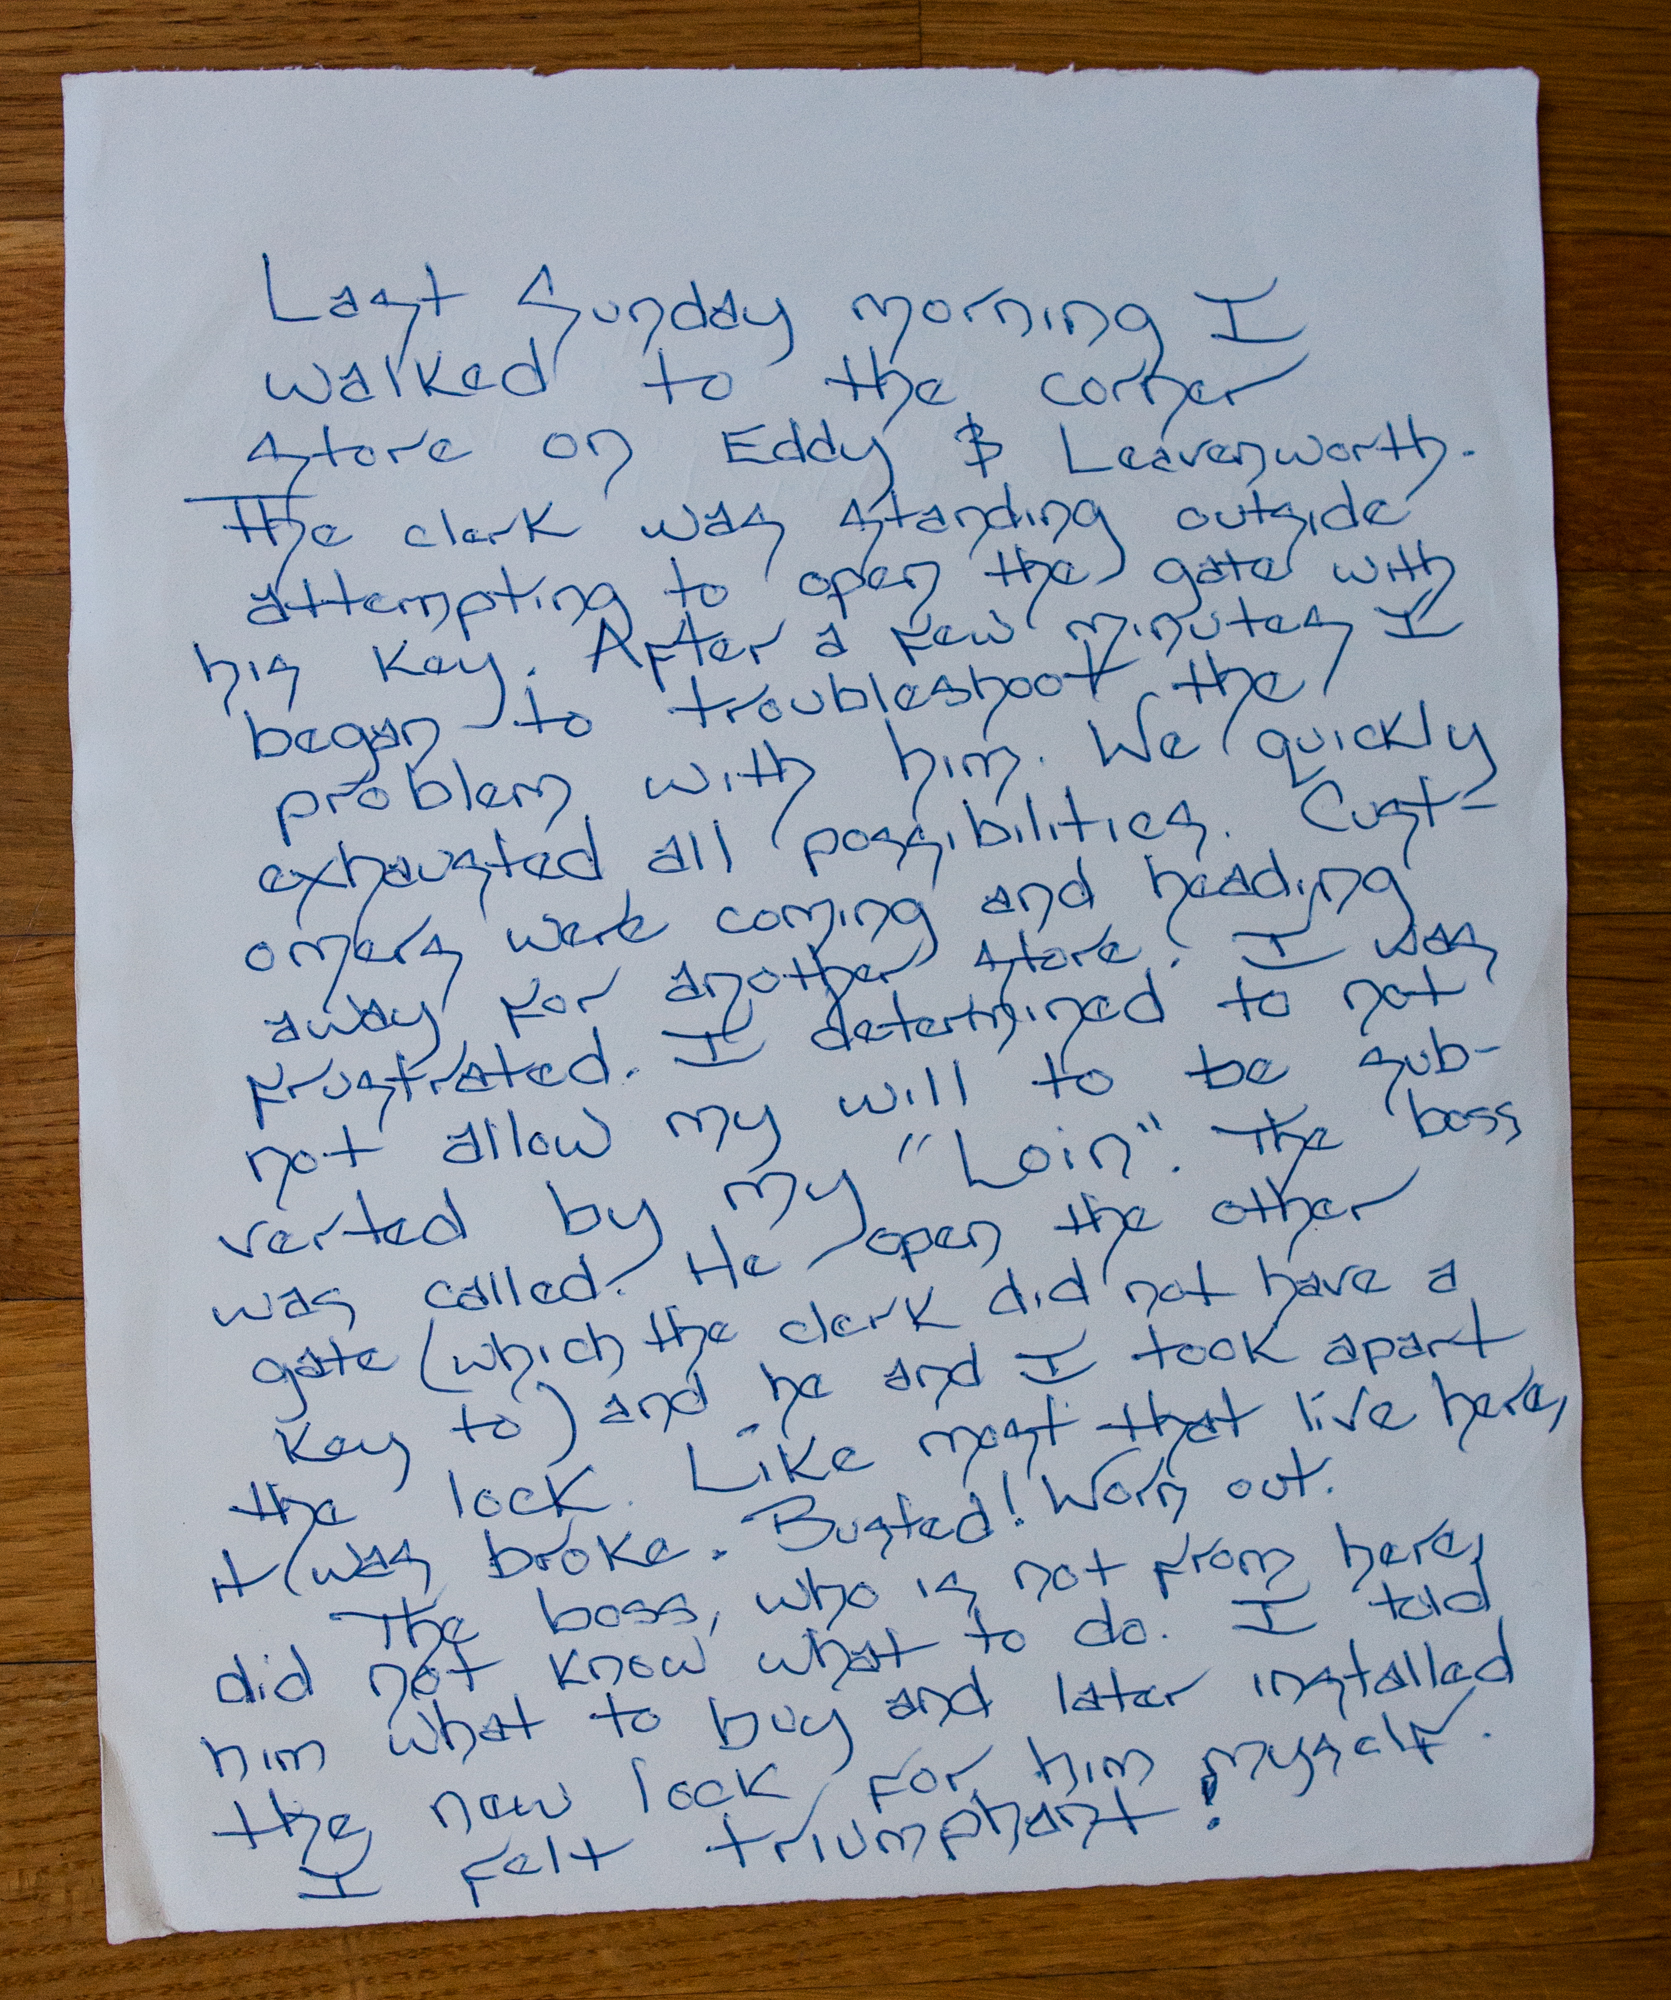 Last Sunday morning I
walked to the corner
store on Eddy & Leavenworth.
The clerk was standing outside
attempting to open the gate with
his key. After a few minutes I
began to troubleshoot the
problem with him. We quickly
exhausted all possibilities. Cust-
omers were coming and heading
away for another store. I was
frustrated. I determined to not
not allow my will to be sub-
verted by my "Loin". The boss
was called. He open the other
gate (which the clerk did not have a
key to) and he and I took apart
the lock. Like most that live here,
it was broke. Busted! Worn out.
The boss, who is not from here,
did not know what to do. I told
him what to buy and later installed
the new lock for him myself.
I felt triumphant!